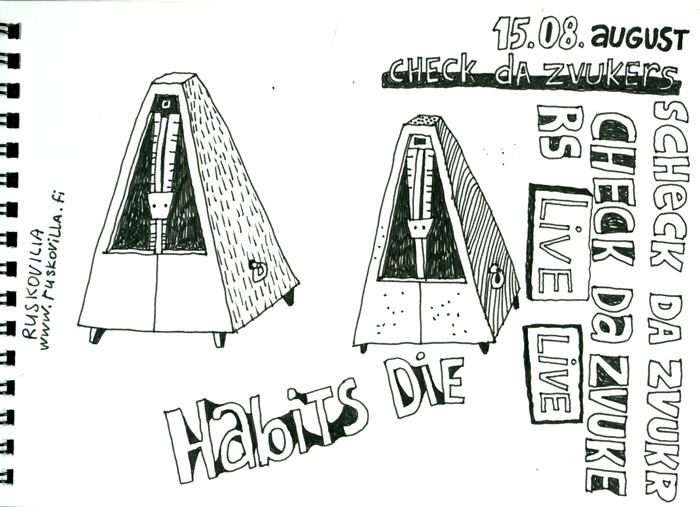 15.08. AUGUST
CHECK dA ZVUKERS
SCHECK DA ZVUKR
CHECK DA ZVUKE
RS
LiVE
LiVE
Habits DiE
RUSKOVILIA
www.ruskovilla.fi